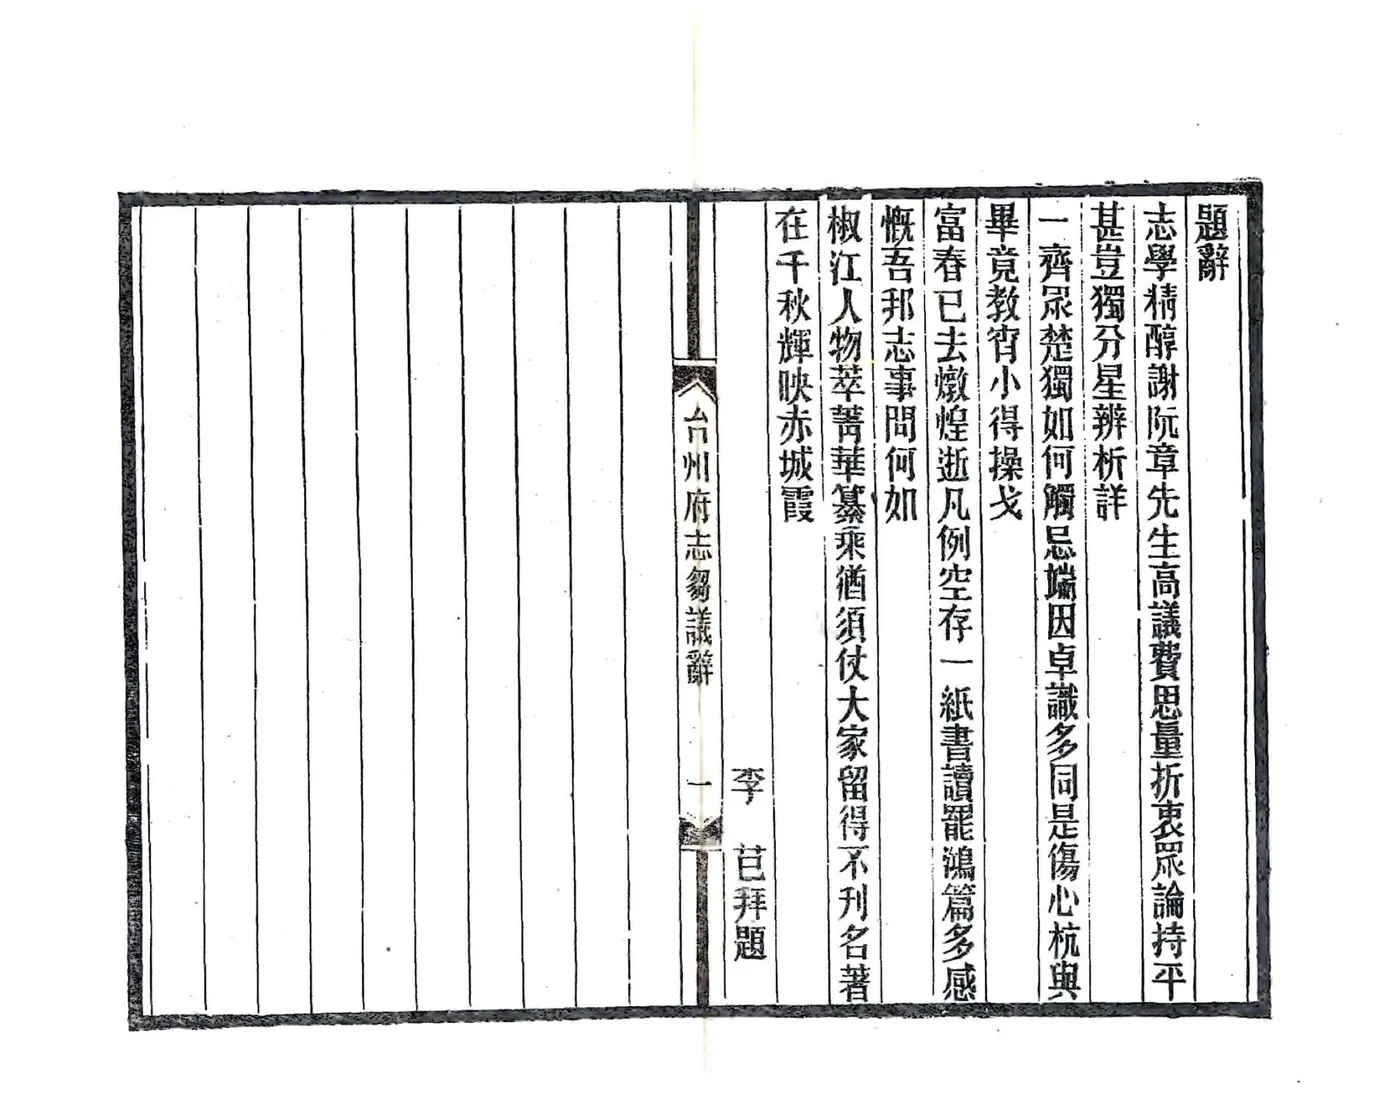 題辭
志學精醇謝阮章先生高議費思量折衷眾論持平
甚豈獨分星辨析詳
一齊眾楚獨如何觸忌端因卓識多同是傷心杭與
畢竟教宵小得操戈
富春已去燉煌逝凡例空存一紙書讀罷鴻篇多感
慨吾邦志事問何如
椒江人物萃菁華纂乘猶須仗大家留得不刊名著
在千秋輝映赤城霞
李 芑拜題
台州府志芻議辭 一